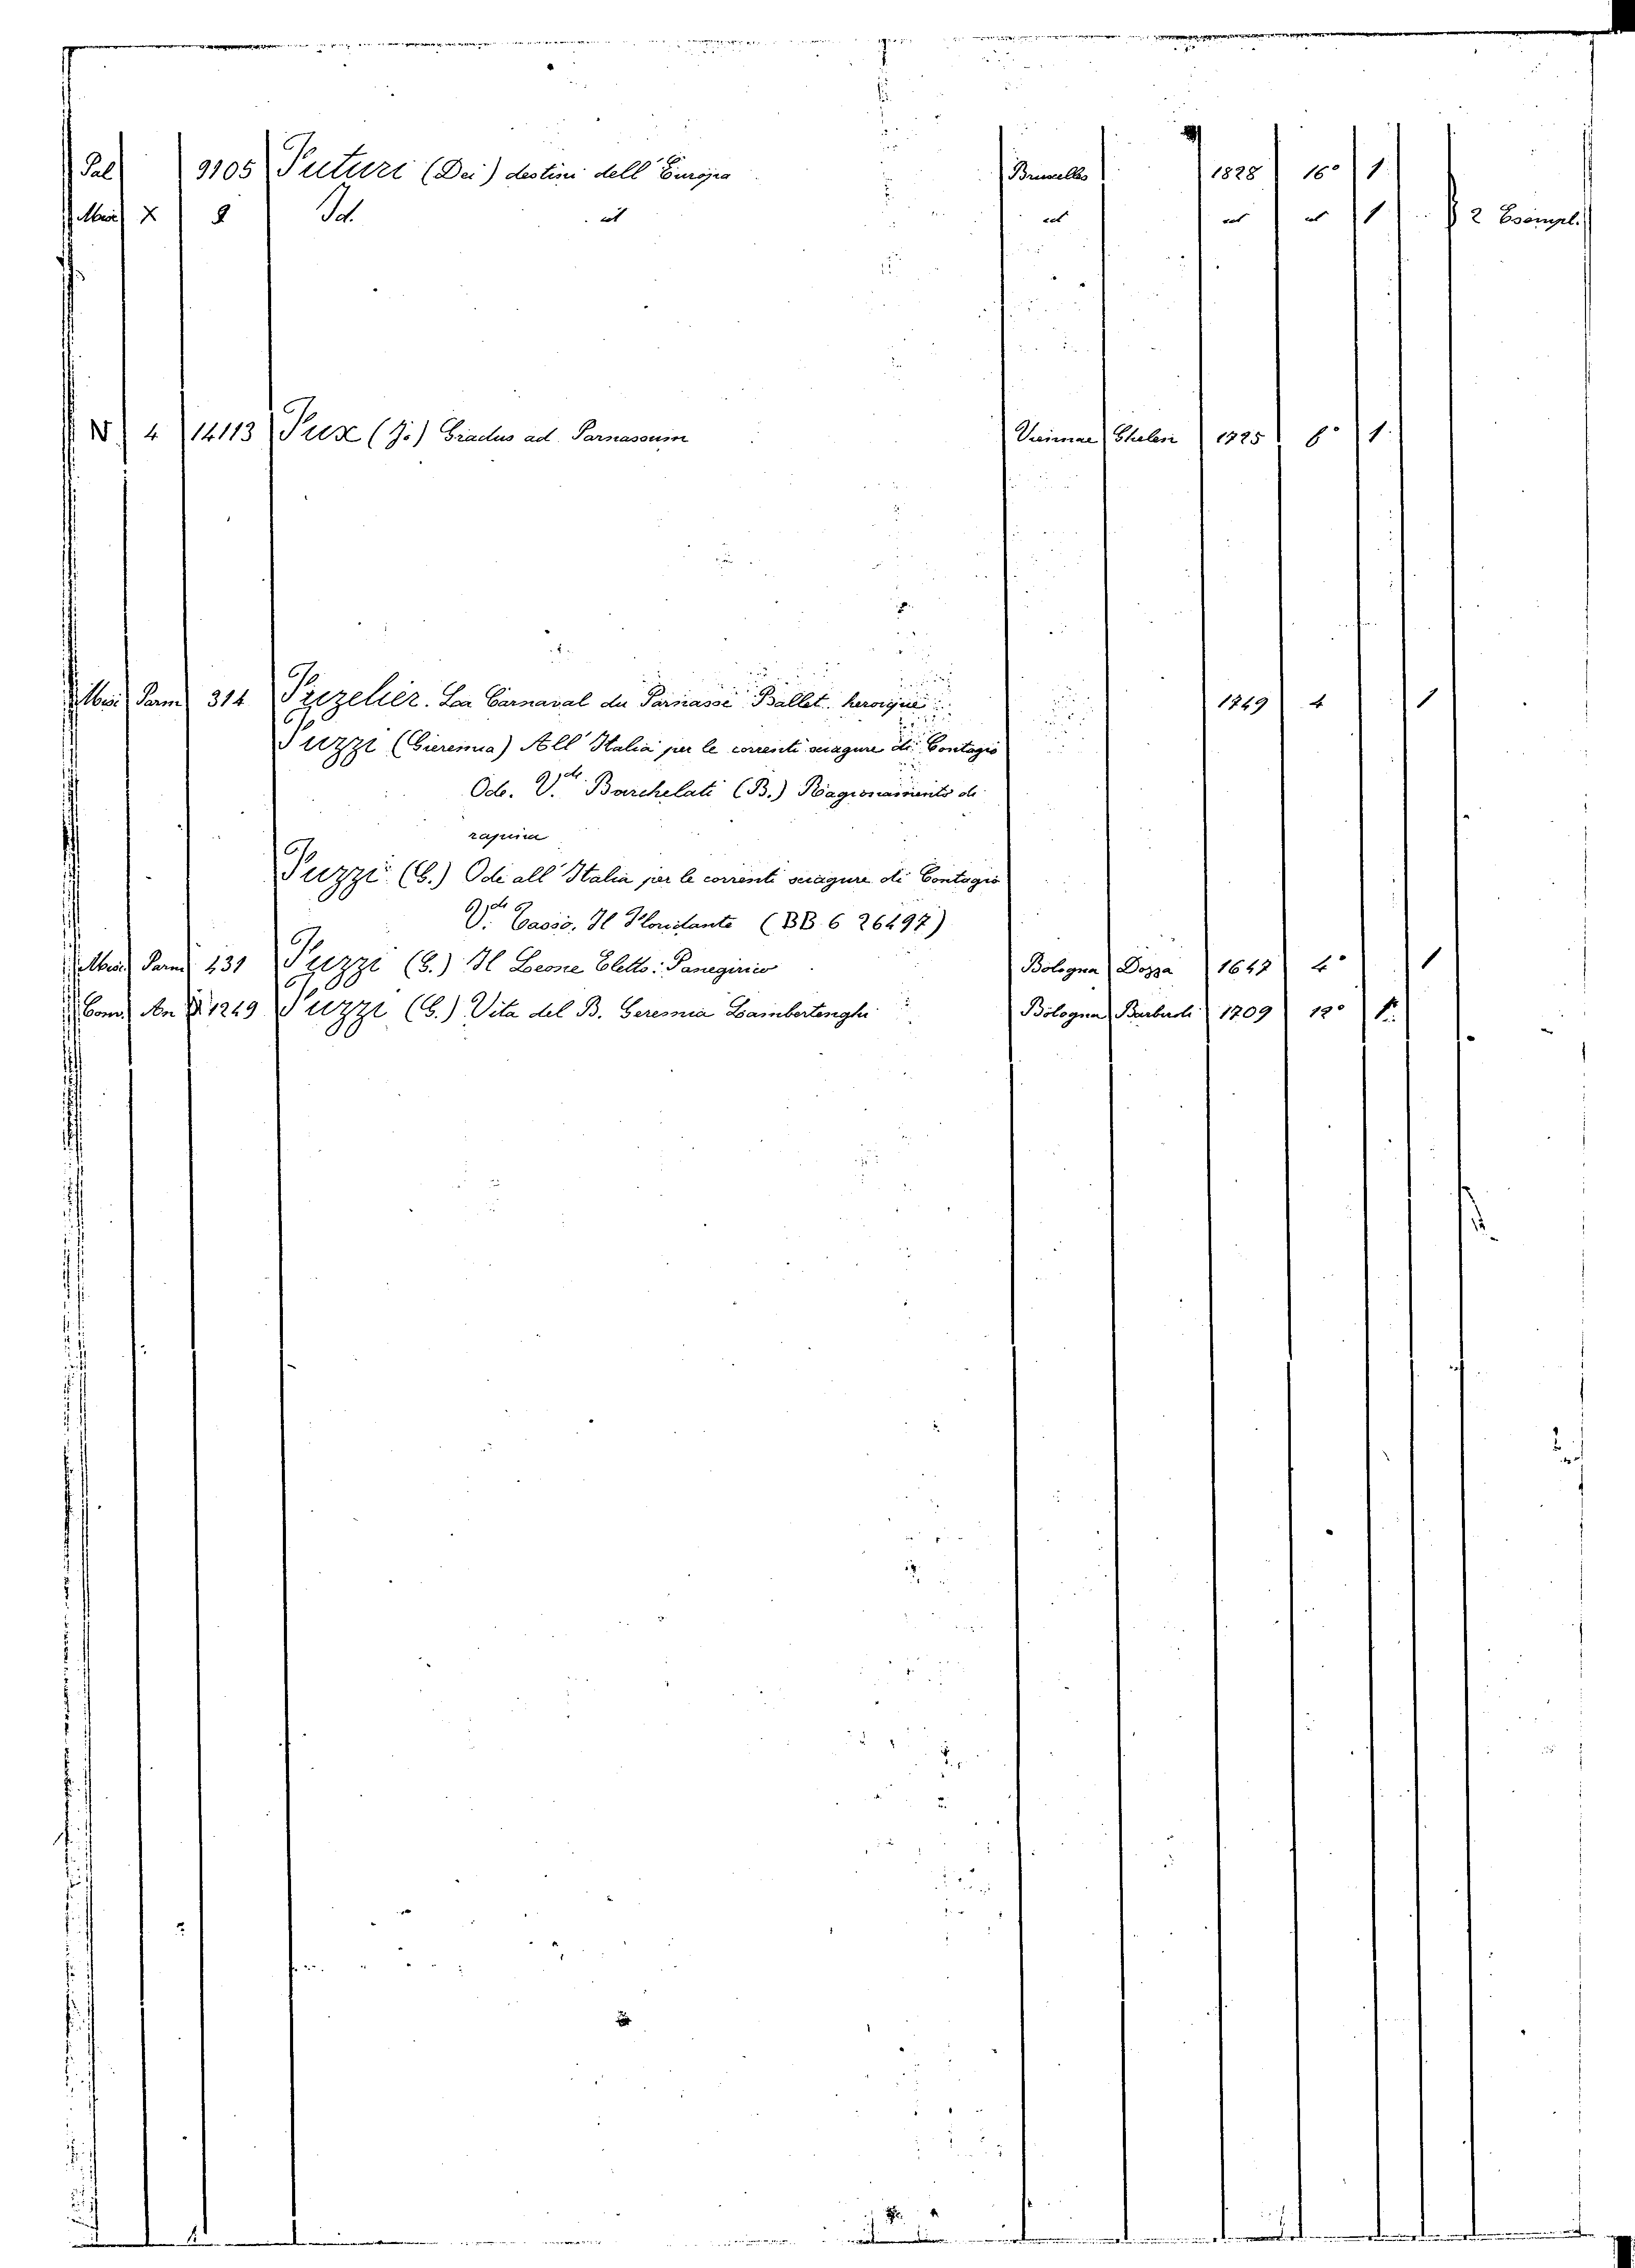 Pal 9105 Futuri (Dei) destini dell' Europa Bruxelles 1828 16° 1
Misc X 2 Id. id id id id 1 2 Esempl.
N 4 14113 Fux (J.) Gradus ad Parnassum Viennae Ghelen 1725 f° 1
Misc Parm 314 Fuzelier. Le Carnaval du Parnasse Ballet heroique 1749 4 1
Fuzzi (Gieremia) All' Italia per le correnti sciagure di Contagio
Ode. V.de Barchelati (B.) Ragionamento di
rapina
Fuzzi (G.) Ode all' Italia per le correnti sciagure di Contagio
V.de Tasso. Il Floridante (BB. 6 26497)
Misc. Parm 431 Fuzzi (G.) Il Leone Eletto: Panegirico Bologna Dozza 1647 4° 1
Com. An 1249 Fuzzi (G.) Vita del B. Geremia Lambertenghi Bologna Barbiroli 1709 12° 1